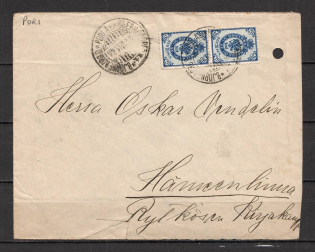 PORI
Herra Oskar Vendelin
Hämeenlinna
Rytkösen Kirjakaup